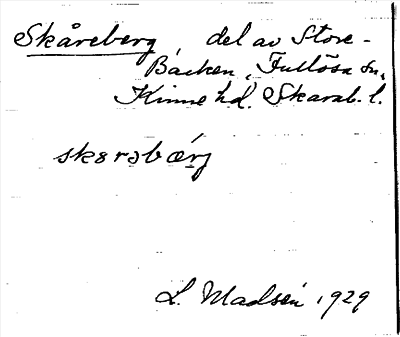 Skåreberg, del av Store-
Backen, Fullösa sn,
Kinne hd. Skarab. l.
skərəbærj
L. Madsén 1929